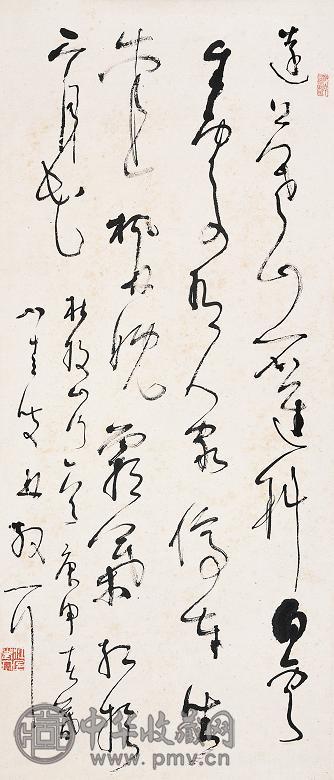 遠上寒山石逕斜白雲
生處有人家停車坐
愛楓林晚霜葉紅於
二月花
杜牧山行 庚申
林散耳
中华收藏网
www.pmv.cn